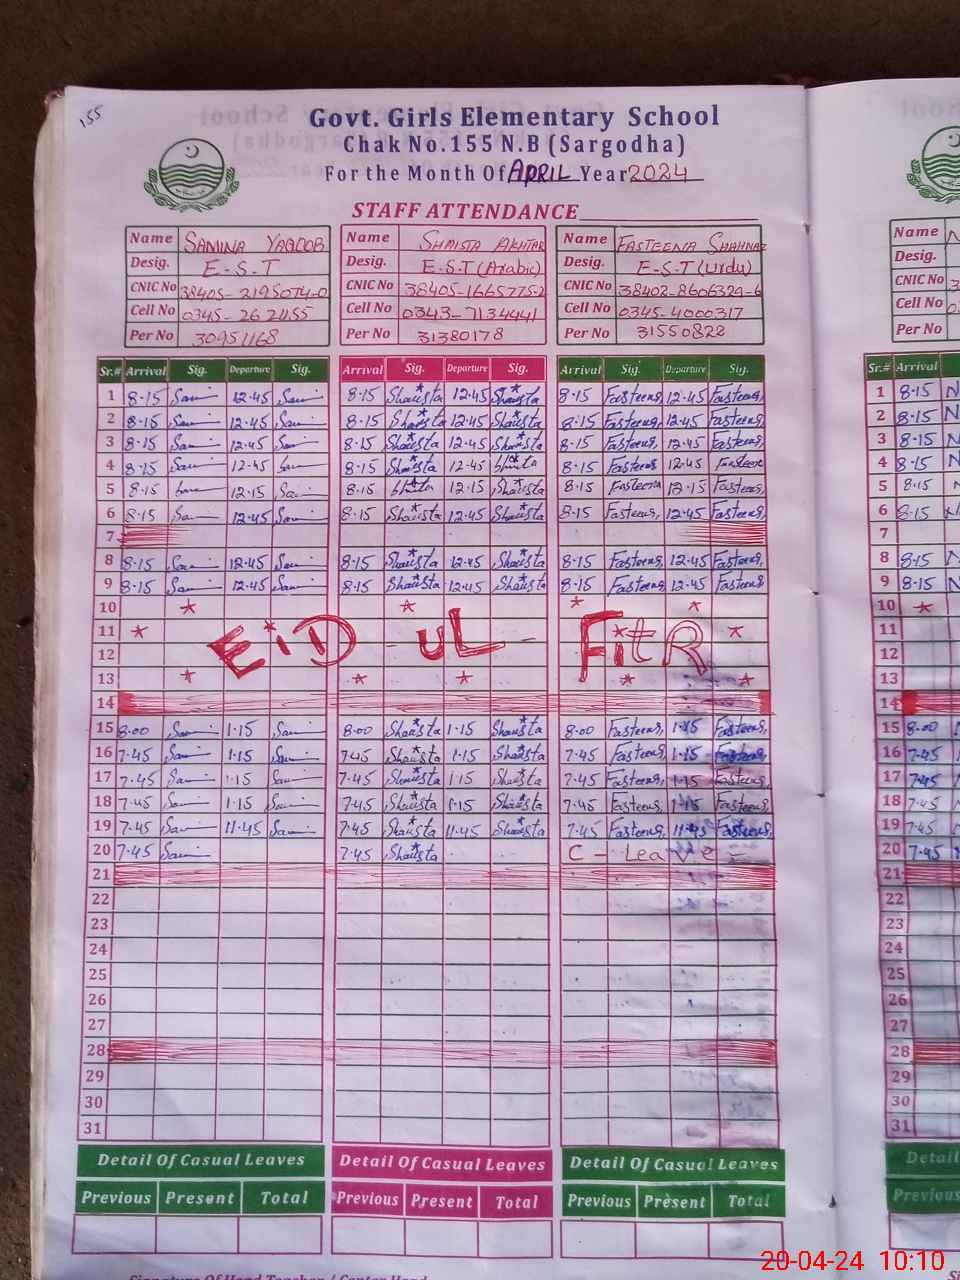 155
Govt. Girls Elementary School
Chak No.155 N.B (Sargodha)
For the Month Of APRIL Year 2024
STAFF ATTENDANCE
Name SAMINA YAQOOB Name SHAISTA AKHTAR Name FASTEENA SHAHNAZ
Desig. E-S-T Desig. E-S-T (Arabic) Desig. E-S-T (Urdu)
CNIC No 38405-2195074-0 CNIC No 38405-1665775-2 CNIC No 38402-8606329-6
Cell No 0345-2621155 Cell No 0343-7134441 Cell No 0345-4000317
Per No 30951168 Per No 31380178 Per No 31550822
Sr.# Arrival Sig. Departure Sig. Arrival Sig. Departure Sig. Arrival Sig. Departure Sig. Sr.# Arrival
1 8-15 12-45 8-15 Shaista 12-45 Shaista 8-15 Fasteena 12-45 Fasteena 1 8-15
2 8-15 12-45 8-15 Shaista 12-45 Shaista 8-15 Fasteena 12-45 Fasteena 2 8-15
3 8-15 12-45 8-15 Shaista 12-45 Shaista 8-15 Fasteena 12-45 Fasteena 3 8-15
4 8-15 12-45 8-15 Shaista 12-45 8-15 Fasteena 12-45 Fasteena 4 8-15
5 8-15 12-15 8-15 12-15 Shaista 8-15 Fasteena 12-15 Fasteena 5 8-15
6 8-15 12-45 8-15 Shaista 12-45 Shaista 8-15 Fasteena 12-45 Fasteena 6 8-15
7
8 8-15 12-45 8-15 Shaista 12-45 Shaista 8-15 Fasteena 12-45 Fasteena 8 8-15
9 8-15 12-45 8-15 Shaista 12-45 Shaista 8-15 Fasteena 12-45 Fasteena 9 8-15
10 10
11 EiD UL FitR 11
12 12
13 13
14 14
15 8-00 1-15 8-00 Shaista 1-15 Shaista 8-00 Fasteena 1-15 Fasteena 15 8-00
16 7-45 1-15 7-45 Shaista 1-15 Shaista 7-45 Fasteena 1-15 Fasteena 16 7-45
17 7-45 1-15 7-45 Shaista 1-15 Shaista 7-45 Fasteena 1-15 Fasteena 17 7-45
18 7-45 1-15 7-45 Shaista 1-15 Shaista 7-45 Fasteena 1-15 Fasteena 18 7-45
19 7-45 11-45 7-45 Shaista 11-45 Shaista 7-45 Fasteena 11-45 Fasteena 19 7-45
20 7-45 7-45 Shaista C - Leave - 20 7-45
21 21
22 22
23 23
24 24
25 25
26 26
27 27
28 28
29 29
30 30
31 31
Detail Of Casual Leaves Detail Of Casual Leaves Detail Of Casual Leaves Detail
Previous Present Total Previous Present Total Previous Present Total Previous
20-04-24 10:10